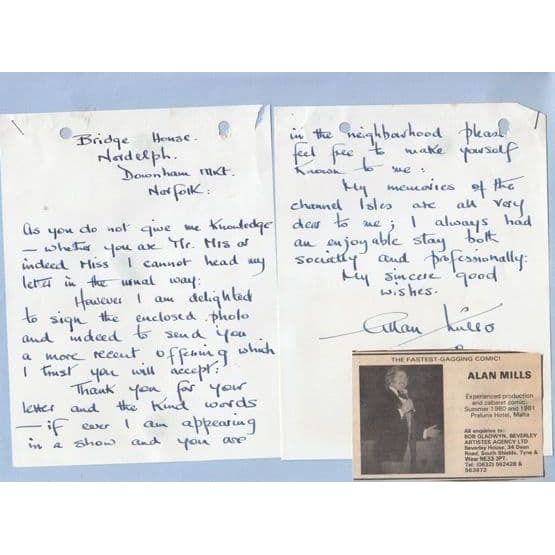 Bridge House.
Nordelph.
Downham Mkt.
Norfolk:
As you do not give me knowledge
— whether you are Mr. Mrs or
indeed Miss I cannot head my
letter in the usual way:
However I am delighted
to sign the enclosed photo
and indeed to send you
a more recent offering which
I trust you will accept:
Thank you for your
letter and the kind words
— if ever I am appearing
in a show and you are
in the neighbourhood please
feel free to make yourself
known to me:
My memories of the
channel Isles are all very
dear to me; I always had
an enjoyable stay both
socially and professionally:
My sincere good
wishes.
Alan Mills
THE FASTEST-GAGGING COMIC!
ALAN MILLS
Experienced production
and cabaret comic.
Summer 1980 and 1981
Preluna Hotel, Malta
All enquiries to:
BOB GLADWYN, BEVERLEY
ARTISTES AGENCY LTD
Beverley House, 34 Dean
Road, South Shields, Tyne &
Wear NE33 3PT.
Tel: (0632) 562428 &
563873